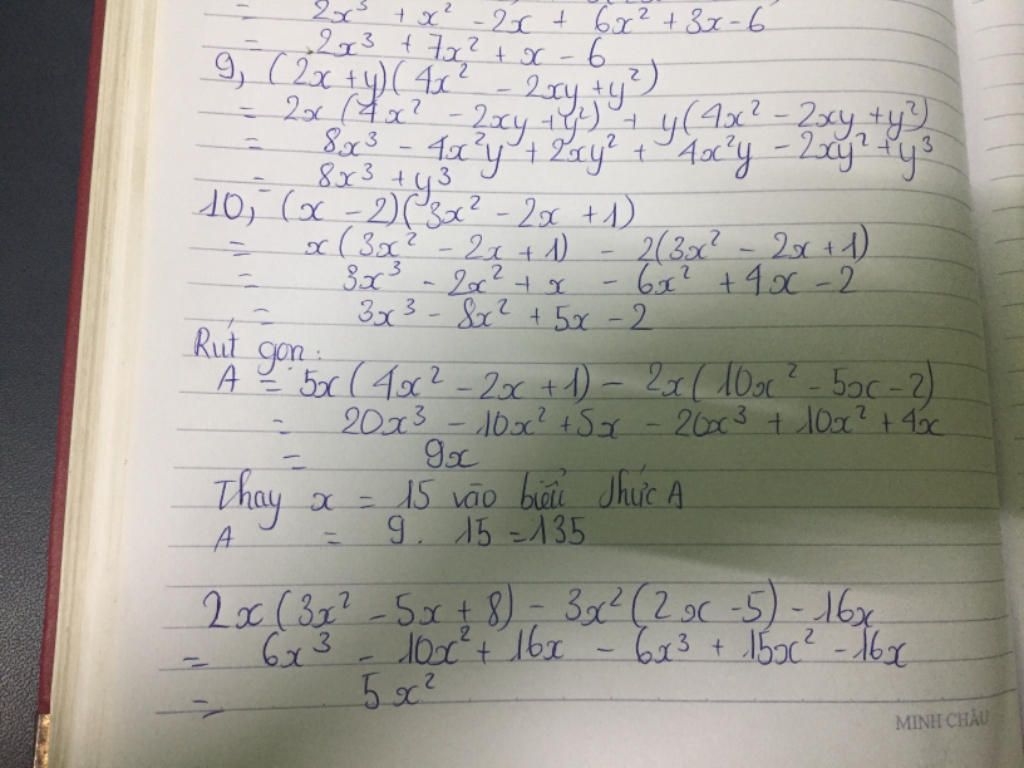 = 2x³ + x² - 2x + 6x² + 3x - 6
= 2x³ + 7x² + x - 6
9, (2x+y)(4x² - 2xy + y²)
= 2x(4x² - 2xy + y²) + y(4x² - 2xy + y²)
= 8x³ - 4x²y + 2xy² + 4x²y - 2xy² + y³
= 8x³ + y³
10, (x - 2)(3x² - 2x + 1)
= x(3x² - 2x + 1) - 2(3x² - 2x + 1)
= 3x³ - 2x² + x - 6x² + 4x - 2
= 3x³ - 8x² + 5x - 2
Rút gọn:
A = 5x(4x² - 2x + 1) - 2x(10x² - 5x - 2)
= 20x³ - 10x² + 5x - 20x³ + 10x² + 4x
= 9x
Thay x = 15 vào biểu thức A
A = 9. 15 = 135
2x(3x² - 5x + 8) - 3x²(2x - 5) - 16x
= 6x³ - 10x² + 16x - 6x³ + 15x² - 16x
= 5x²
MINH CHÂU